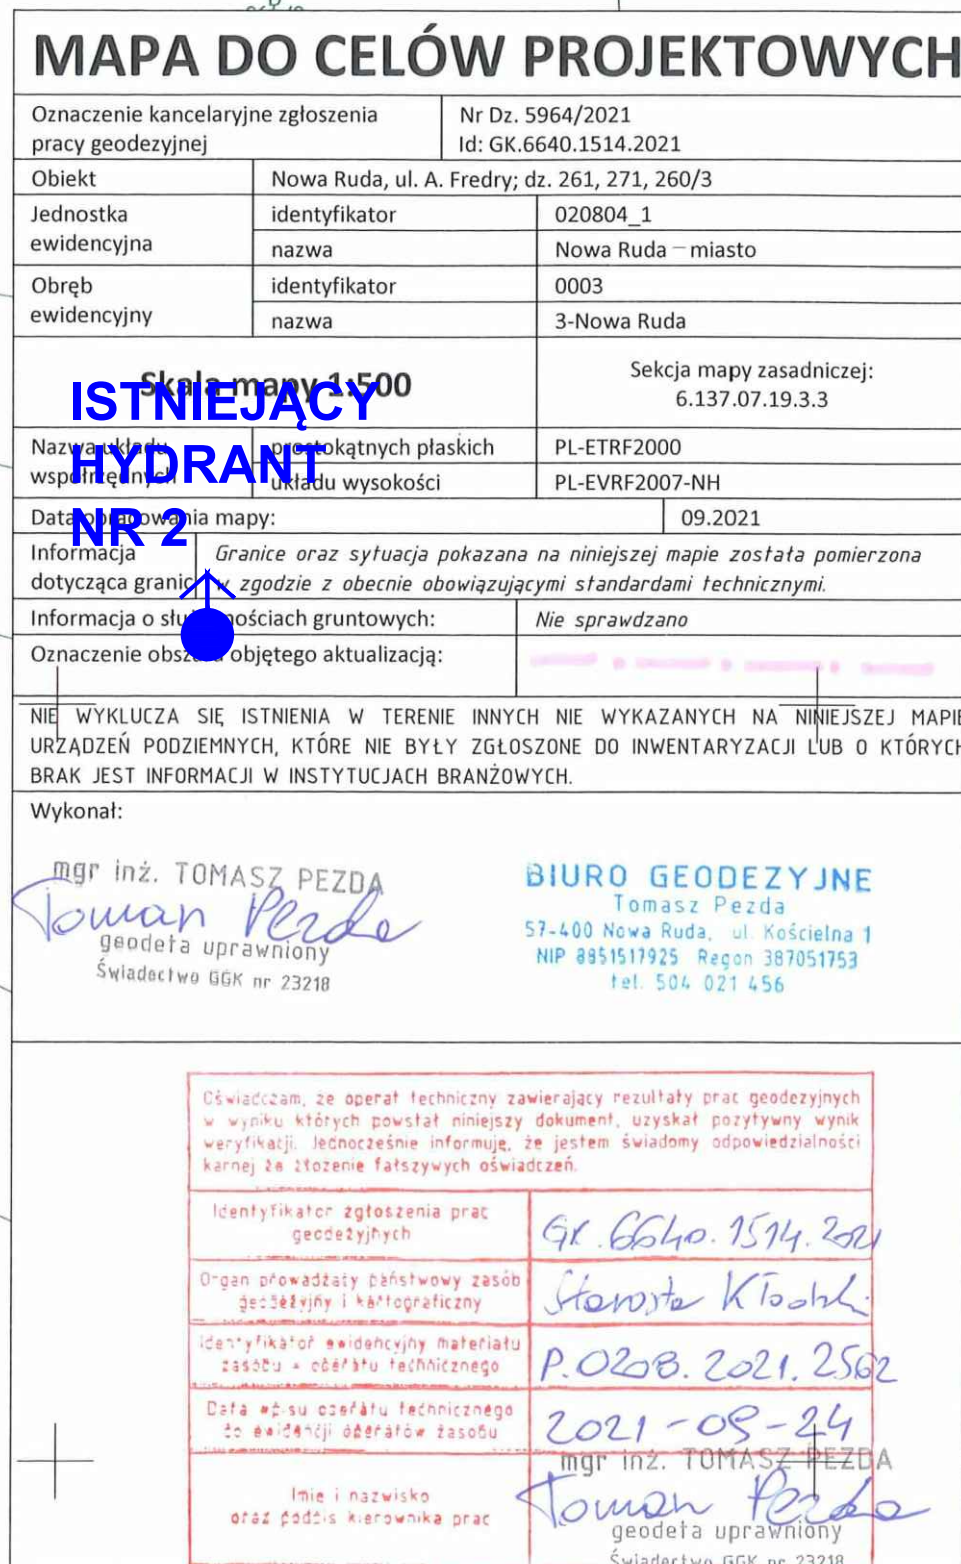 MAPA DO CELÓW PROJEKTOWYCH
Oznaczenie kancelaryjne zgłoszenia
pracy geodezyjnej
Nr Dz. 5964/2021
Id: GK.6640.1514.2021
Obiekt
Nowa Ruda, ul. A. Fredry; dz. 261, 271, 260/3
Jednostka
ewidencyjna
identyfikator
020804_1
nazwa
Nowa Ruda – miasto
Obręb
ewidencyjny
identyfikator
0003
nazwa
3-Nowa Ruda
Skala mapy 1:500
Sekcja mapy zasadniczej:
6.137.07.19.3.3
ISTNIEJĄCY
HYDRANT
NR 2
Nazwa układu
współrzędnych
prostokątnych płaskich
PL-ETRF2000
układu wysokości
PL-EVRF2007-NH
Data opracowania mapy:
09.2021
Informacja
dotycząca granic
Granice oraz sytuacja pokazana na niniejszej mapie została pomierzona
w zgodzie z obecnie obowiązującymi standardami technicznymi.
Informacja o służebnościach gruntowych:
Nie sprawdzano
Oznaczenie obszaru objętego aktualizacją:
NIE WYKLUCZA SIĘ ISTNIENIA W TERENIE INNYCH NIE WYKAZANYCH NA NINIEJSZEJ MAPIE
URZĄDZEŃ PODZIEMNYCH, KTÓRE NIE BYŁY ZGŁOSZONE DO INWENTARYZACJI LUB O KTÓRYCH
BRAK JEST INFORMACJI W INSTYTUCJACH BRANŻOWYCH.
Wykonał:
mgr inż. TOMASZ PEZDA
Tomasz Pezda
geodeta uprawniony
Świadectwo GGK nr 23218
BIURO GEODEZYJNE
Tomasz Pezda
57-400 Nowa Ruda, ul. Kościelna 1
NIP 8851517925 Regon 387051753
tel. 504 021 456
Oświadczam, że operat techniczny zawierający rezultaty prac geodezyjnych
w wyniku których powstał niniejszy dokument, uzyskał pozytywny wynik
weryfikacji. Jednocześnie informuję, że jestem świadomy odpowiedzialności
karnej za złożenie fałszywych oświadczeń.
Identyfikator zgłoszenia prac
geodezyjnych
GK.6640.1514.2021
Organ prowadzący państwowy zasób
geodezyjny i kartograficzny
Starosta Kłodzki
Identyfikator ewidencyjny materiału
zasobu - operatu technicznego
P.0208.2021.2562
Data wpisu operatu technicznego
do ewidencji operatów zasobu
2021-09-24
Imię i nazwisko
oraz podpis kierownika prac
mgr inż. TOMASZ PEZDA
Tomasz Pezda
geodeta uprawniony
Świadectwo GGK nr 23218